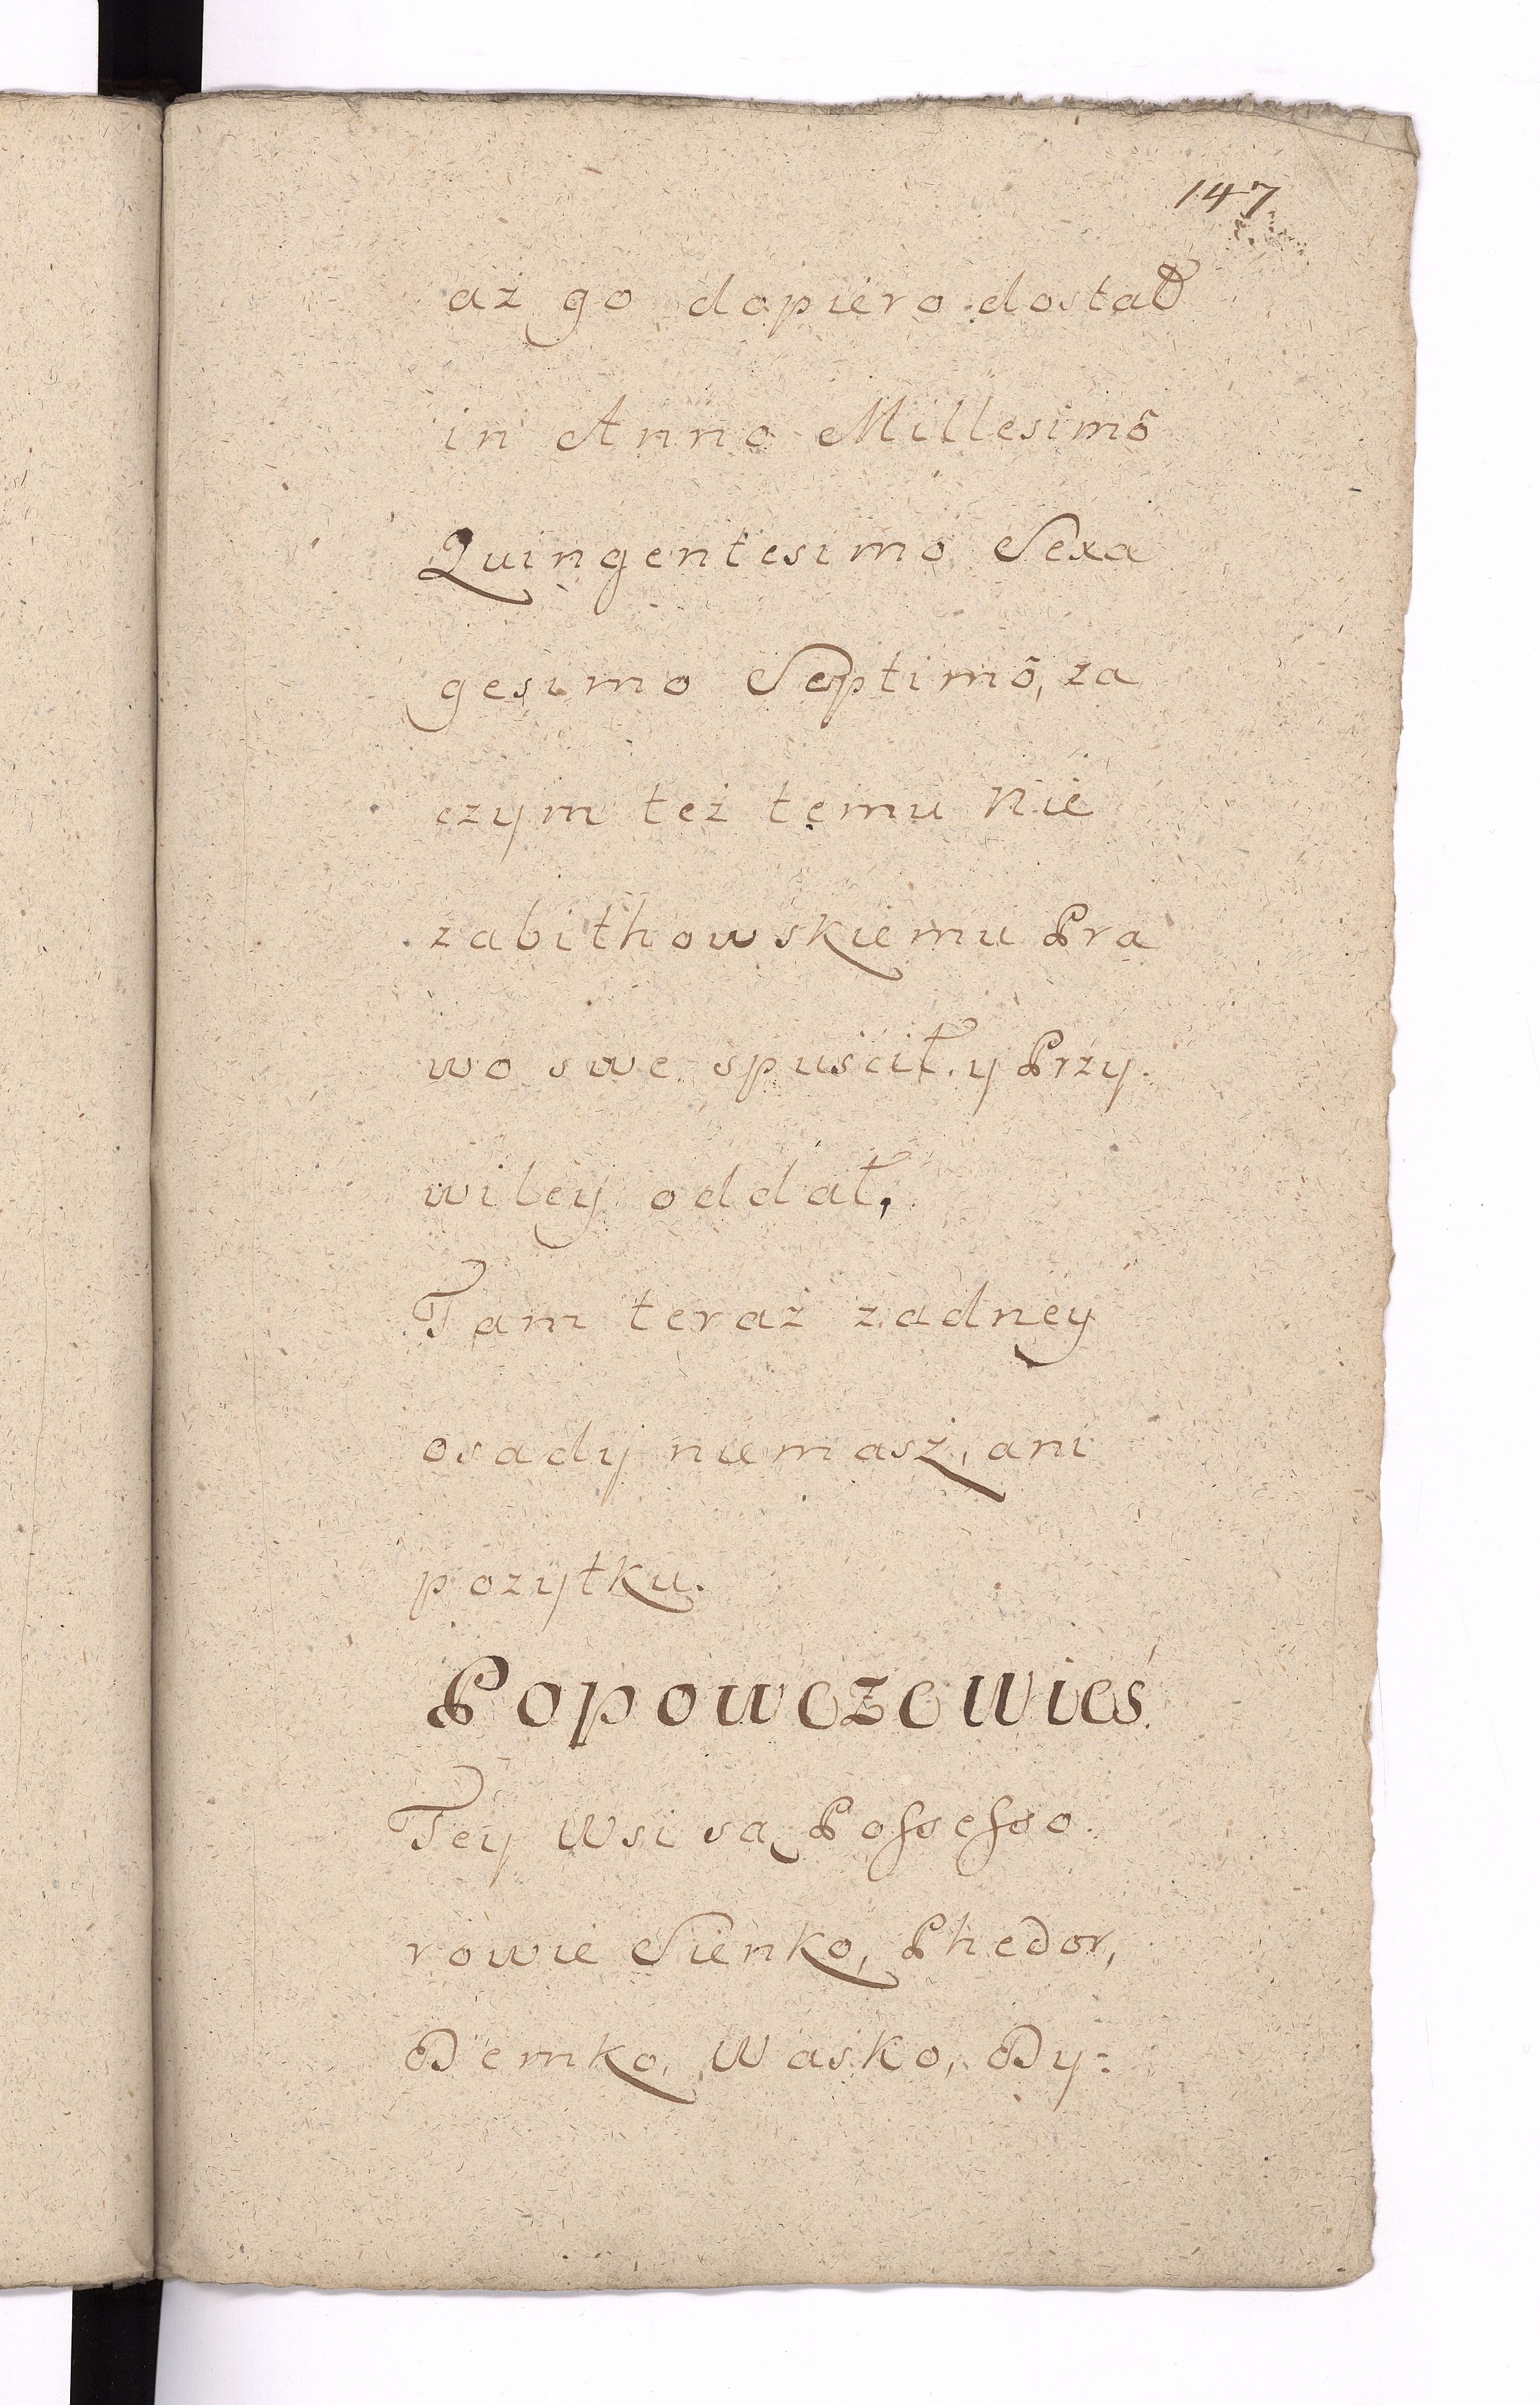 147
aż go dopiero dostał
in Anno Millesimõ
Quingentesimo Sexa
gesimo Septimõ, za
czym też temu Nie
zabithowskiemu Pra
wo swe spuścił, y Przy.
wiley oddał,
Tam teraz zadney
osady niemasz, ani
pozytku.
Popowczewieś
Tey Wsi są Possesso.
rowie Sienko, Phedor,
Demko, Wasko, Dy: